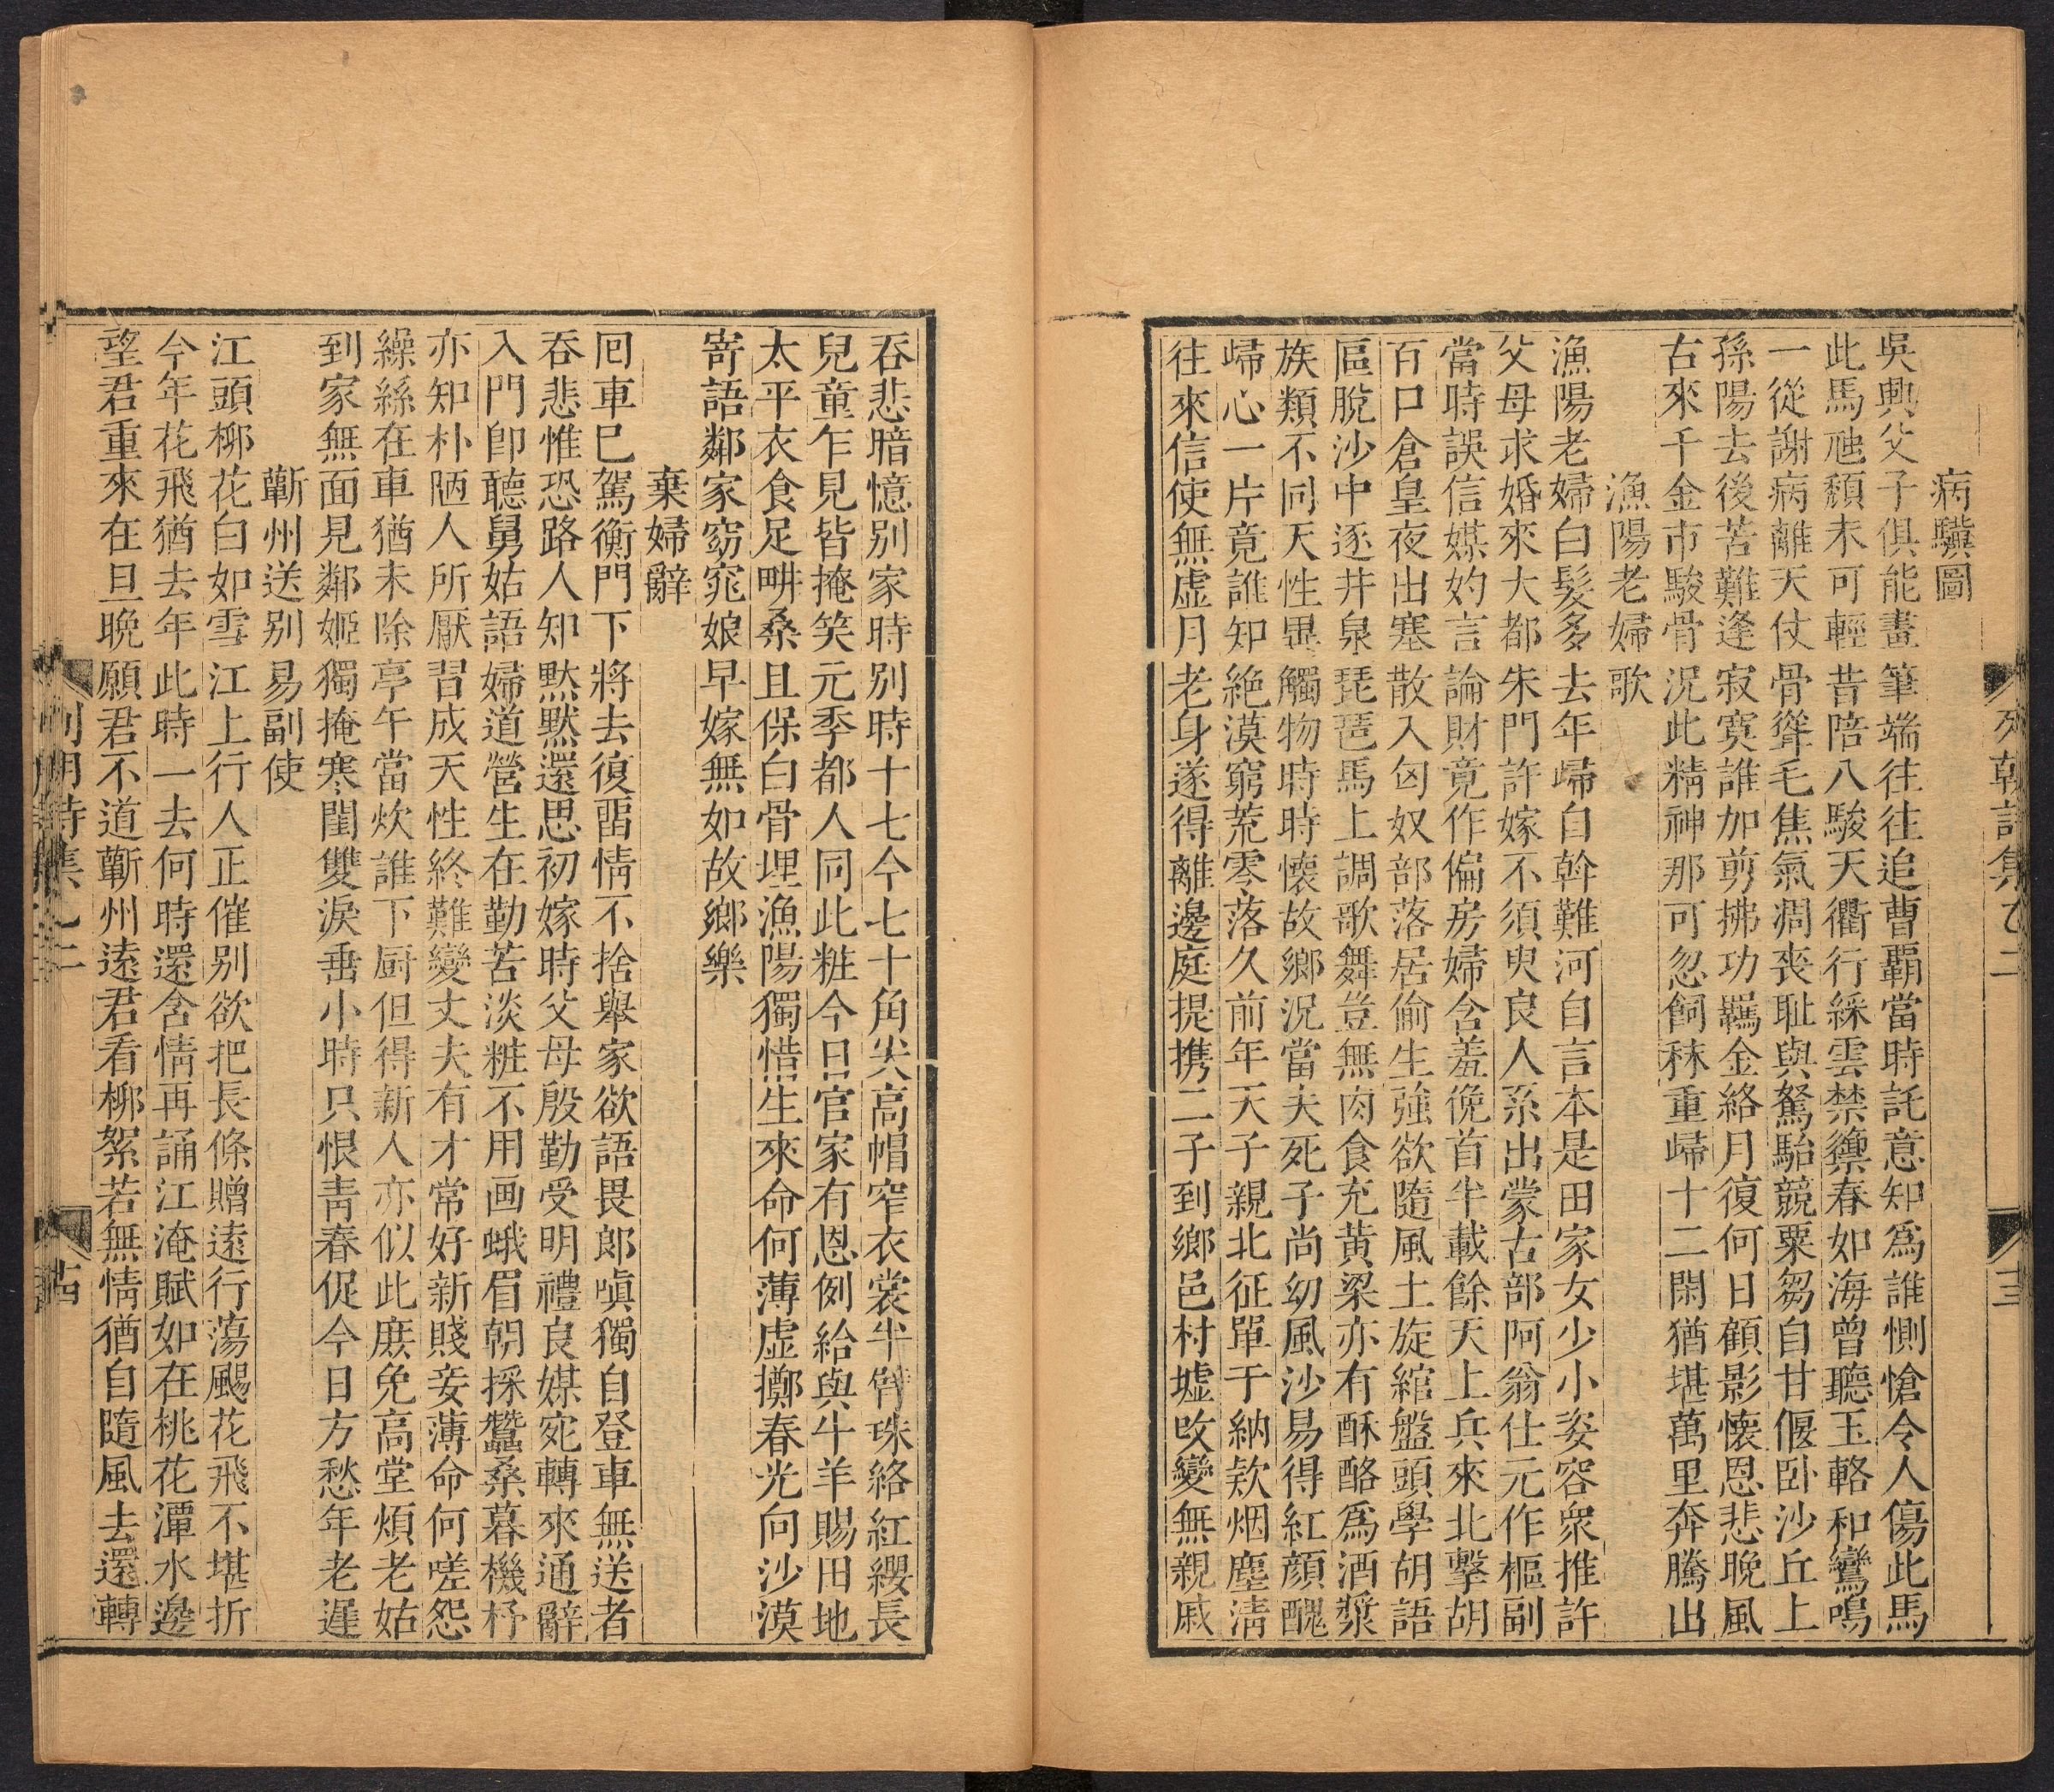 病驥圖
吳興父子俱能畫筆端往往追曹霸當時託意知爲誰惻愴令人傷此馬
此馬虺頽未可輕昔陪八駿天衢行綵雲禁籞春如海曾聽玉輅和鸞鳴
一從謝病離天仗骨聳毛焦氣凋喪耻與駑駘競粟芻自甘偃卧沙丘上
孫陽去後苦難逢寂寞誰加剪拂功羈金絡月復何日顧影懷恩悲晚風
古來千金市駿骨况此精神那可忽飼秣重歸十二閑猶堪萬里奔騰出
漁陽老婦歌
漁陽老婦白髮多去年歸自幹難河自言本是田家女少小姿容衆推許
父母求婚來大都朱門許嫁不須臾良人系出蒙古部阿翁仕元作樞副
當時誤信媒妁言論財竟作偏房婦含羞俛首半載餘天上兵來北擊胡
百口倉皇夜出塞散入匈奴部落居偷生強欲隨風土旋綰盤頭學胡語
區脫沙中逐井泉琵琶馬上調歌舞豈無肉食充黃梁亦有酥酪爲酒漿
族類不同天性異觸物時時懷故鄉況當夫死子尚幼風沙易得紅顏醜
歸心一片竟誰知絶漠窮荒零落久前年天子親北征單于納欵烟塵淸
往來信使無虚月老身遂得離邊庭提携二子到鄉邑村墟改變無親戚
列朝詩集乙二
十三
吞悲暗憶别家時别時十七今七十角尖高帽窄衣裳半臂珠絡紅纓長
兒童乍見皆掩笑元季都人同此粧今日官家有恩例給與牛羊賜田地
太平衣食足畊桑且保白骨埋漁陽獨惜生來命何薄虚擲春光向沙漠
寄語鄰家窈窕娘早嫁無如故鄉樂
棄婦辭
囘車巳駕衡門下將去復畱情不捨舉家欲語畏郎嗔獨自登車無送者
吞悲惟恐路人知默默還思初嫁時父母殷勤受明禮良媒宛轉來通辭
入門卽聽舅姑語婦道營生在勤苦淡粧不用画蛾眉朝採蠶桑暮機杼
亦知朴陋人所厭習成天性終難變丈夫有才常好新賤妾薄命何嗟怨
繰絲在車猶未除亭午當炊誰下厨但得新人亦似此庶免高堂煩老姑
到家無面見鄰姬獨掩寒閨雙淚垂小時只恨靑春促今日方愁年老遲
蘄州送别易副使
江頭柳花白如雪江上行人正催别欲把長條贈遠行蕩颺花飛不堪折
今年花飛猶去年此時一去何時還含情再誦江淹賦如在桃花潭水邊
望君重來在旦晩願君不道蘄州遠君看柳絮若無情猶自隨風去還轉
列朝詩集乙二
十四